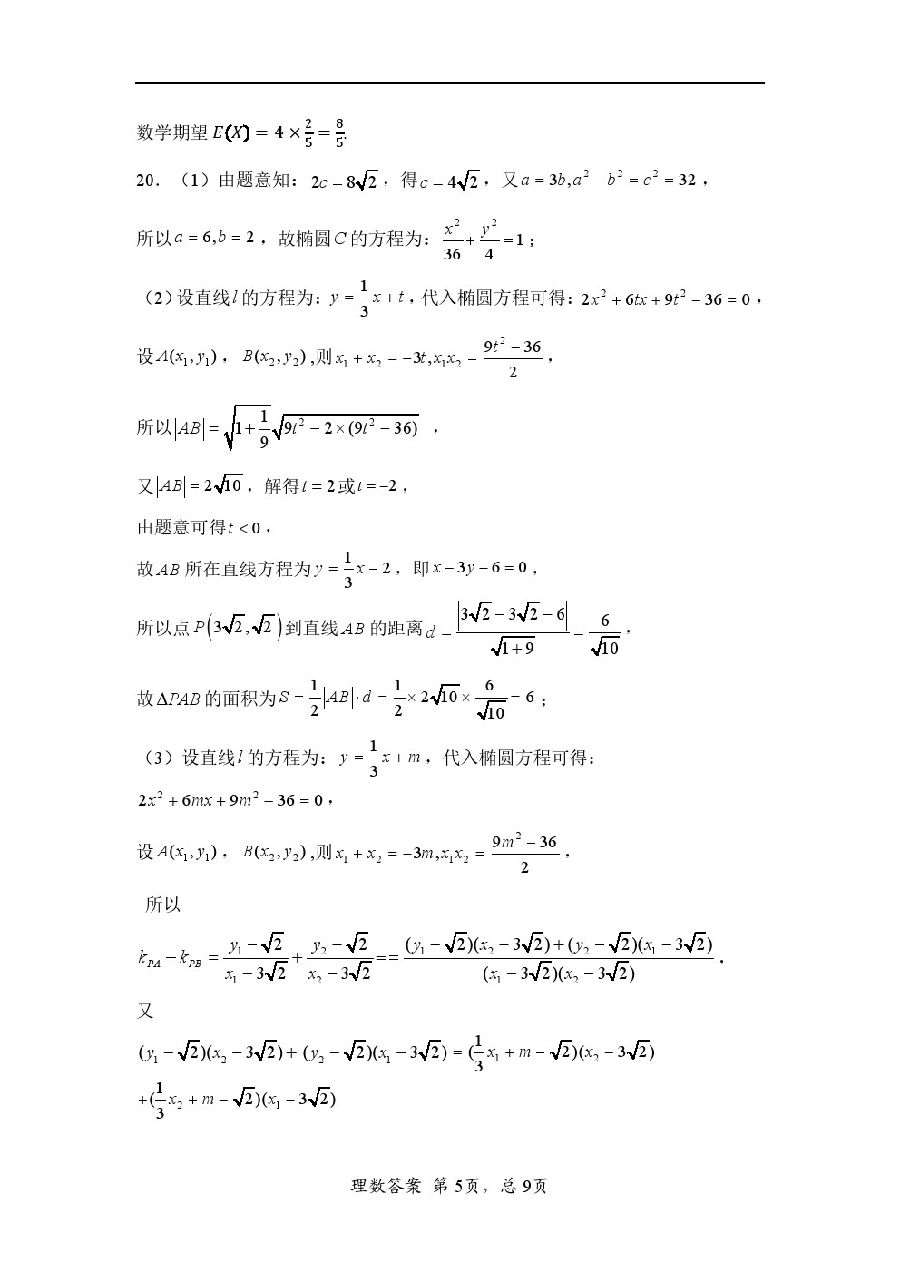 数学期望 E(X) = 4 × 2/5 = 8/5.
20．（1）由题意知：2c = 8√2，得c = 4√2，又a = 3b, a² b² = c² = 32，
所以a = 6, b = 2，故椭圆C的方程为：x²/36 + y²/4 = 1；
（2）设直线l的方程为：y = 1/3 x + t，代入椭圆方程可得：2x² + 6tx + 9t² − 36 = 0，
设A(x₁, y₁)，B(x₂, y₂),则x₁ + x₂ = −3t, x₁x₂ = (9t² − 36)/2，
所以|AB| = √(1 + 1/9) √(9t² − 2×(9t² − 36))，
又|AB| = 2√10，解得t = 2或t = −2，
由题意可得t < 0，
故AB所在直线方程为y = 1/3 x − 2，即x − 3y − 6 = 0，
所以点P(3√2, √2)到直线AB的距离d = |3√2 − 3√2 − 6|/√(1+9) = 6/√10，
故ΔPAB的面积为S = 1/2 |AB|·d = 1/2 × 2√10 × 6/√10 = 6；
（3）设直线l的方程为：y = 1/3 x + m，代入椭圆方程可得：
2x² + 6mx + 9m² − 36 = 0，
设A(x₁, y₁)，B(x₂, y₂),则x₁ + x₂ = −3m, x₁x₂ = (9m² − 36)/2．
所以
k_PA − k_PB = (y₁ − √2)/(x₁ − 3√2) + (y₂ − √2)/(x₂ − 3√2) == ((y₁ − √2)(x₂ − 3√2) + (y₂ − √2)(x₁ − 3√2))/((x₁ − 3√2)(x₂ − 3√2))．
又
(y₁ − √2)(x₂ − 3√2) + (y₂ − √2)(x₁ − 3√2) = (1/3 x₁ + m − √2)(x₂ − 3√2)
+(1/3 x₂ + m − √2)(x₁ − 3√2)
理数答案 第 5页，总 9页